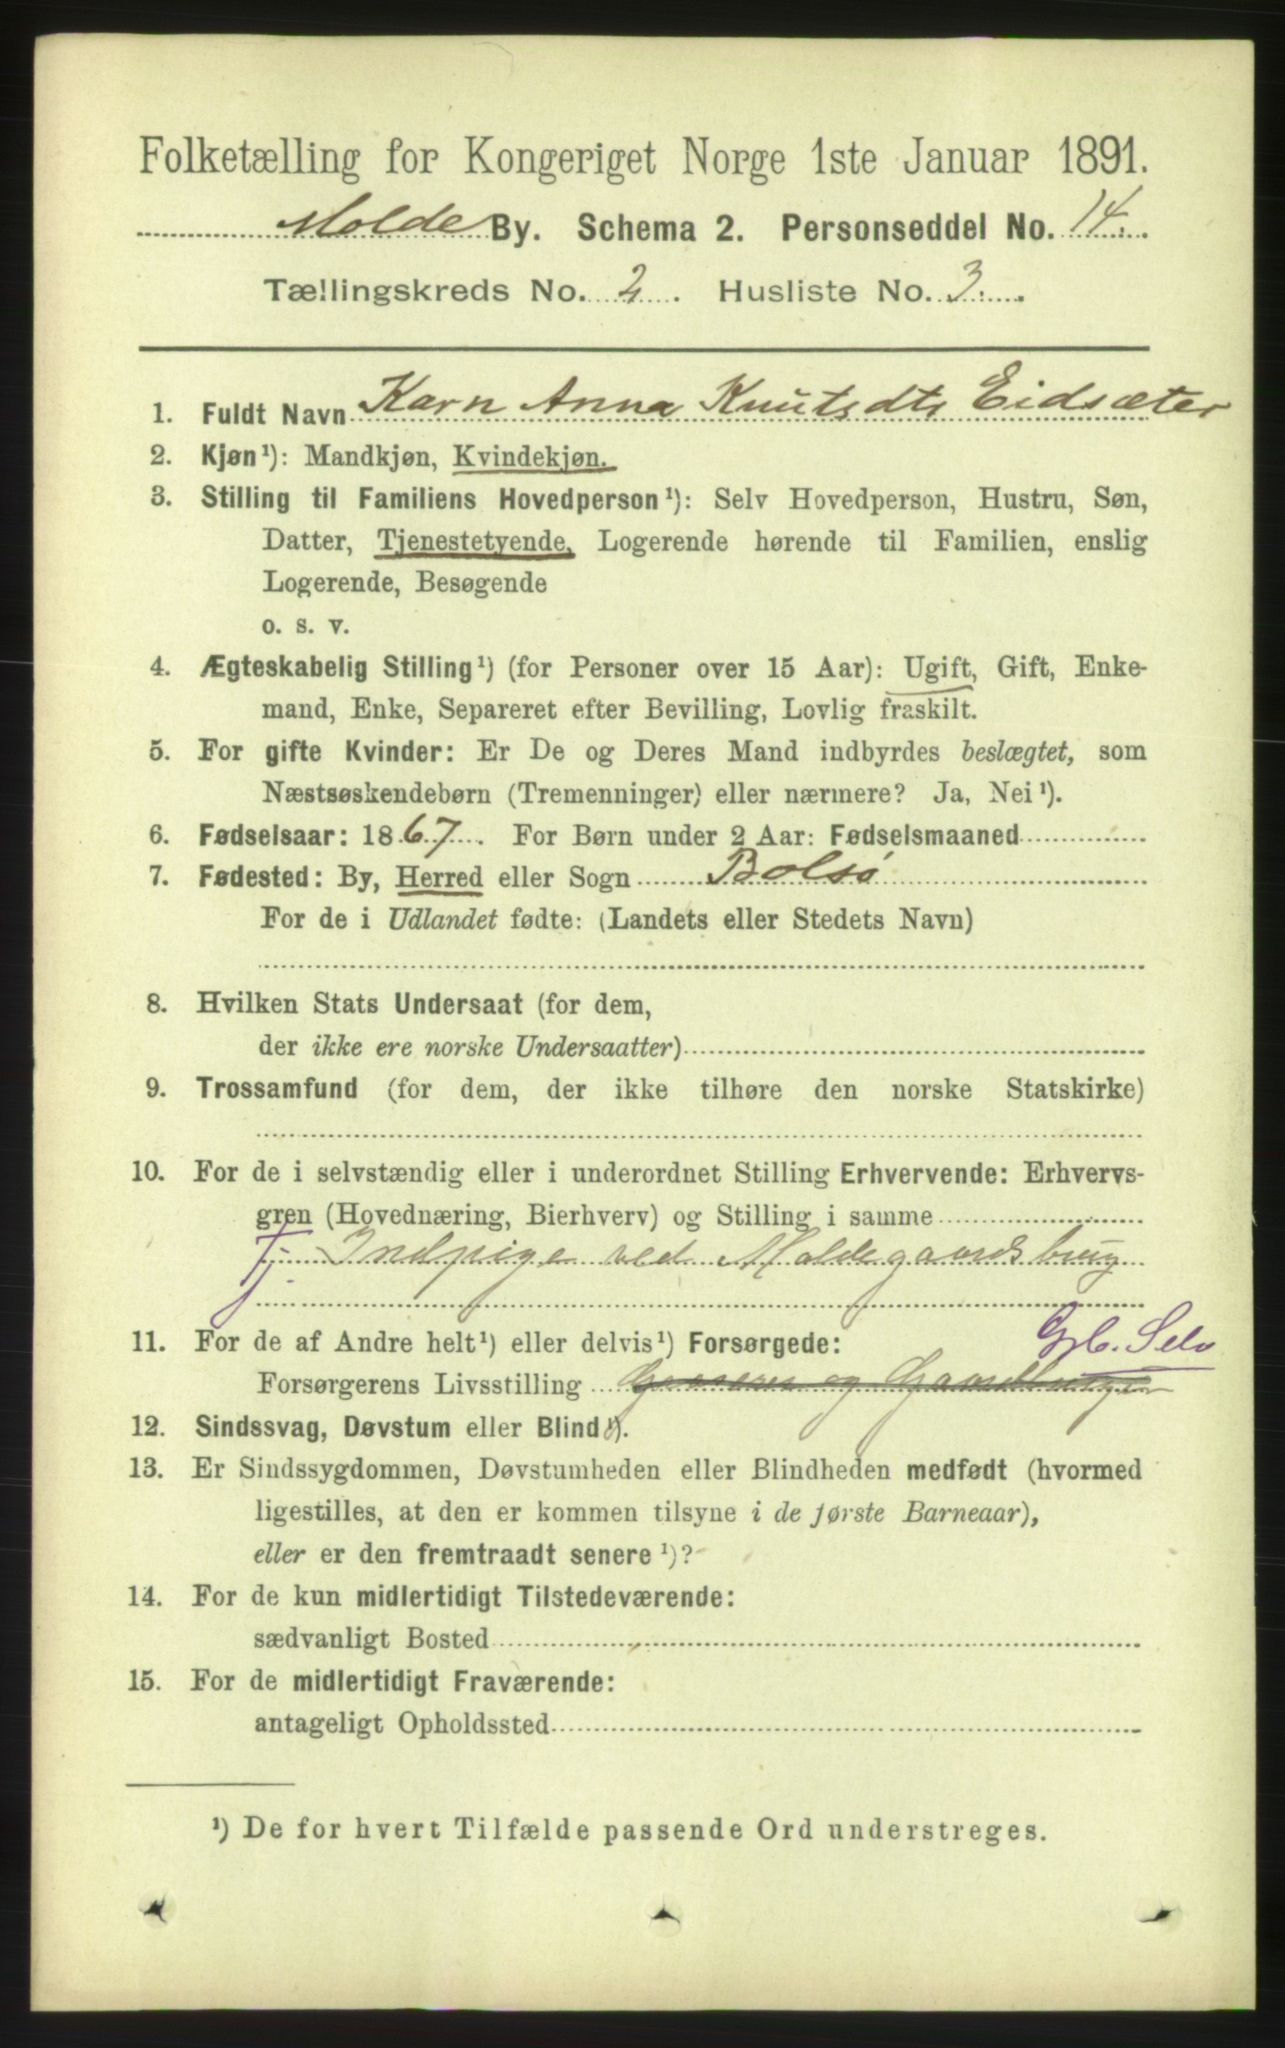 Folketælling for Kongeriget Norge 1ste Januar 1891.
Molde By. Schema 2. Personseddel No. 14.
Tællingskreds No. 2. Husliste No. 3.
1. Fuldt Navn Karn Anna Knutsdtr Eidsæter
2. Kjøn¹): Mandkjøn, Kvindekjøn.
3. Stilling til Familiens Hovedperson¹): Selv Hovedperson, Hustru, Søn,
Datter, Tjenestetyende, Logerende hørende til Familien, enslig
Logerende, Besøgende
o. s. v.
4. Ægteskabelig Stilling¹) (for Personer over 15 Aar): Ugift, Gift, Enke-
mand, Enke, Separeret efter Bevilling, Lovlig fraskilt.
5. For gifte Kvinder: Er De og Deres Mand indbyrdes beslægtet, som
Næstsøskendebørn (Tremenninger) eller nærmere? Ja, Nei¹).
6. Fødselsaar: 1867. For Børn under 2 Aar: Fødselsmaaned
7. Fødested: By, Herred eller Sogn Bolsø
For de i Udlandet fødte: (Landets eller Stedets Navn)
8. Hvilken Stats Undersaat (for dem,
der ikke ere norske Undersaatter)
9. Trossamfund (for dem, der ikke tilhøre den norske Statskirke)
10. For de i selvstændig eller i underordnet Stilling Erhvervende: Erhvervs-
gren (Hovednæring, Bierhverv) og Stilling i samme
Tj. Indpige ved Moldegaards brug
11. For de af Andre helt¹) eller delvis¹) Forsørgede: Gb. Selv
Forsørgerens Livsstilling og
12. Sindssvag, Døvstum eller Blind¹).
13. Er Sindssygdommen, Døvstumheden eller Blindheden medfødt (hvormed
ligestilles, at den er kommen tilsyne i de første Barneaar),
eller er den fremtraadt senere¹)?
14. For de kun midlertidigt Tilstedeværende:
sædvanligt Bosted
15. For de midlertidigt Fraværende:
antageligt Opholdssted
¹) De for hvert Tilfælde passende Ord understreges.